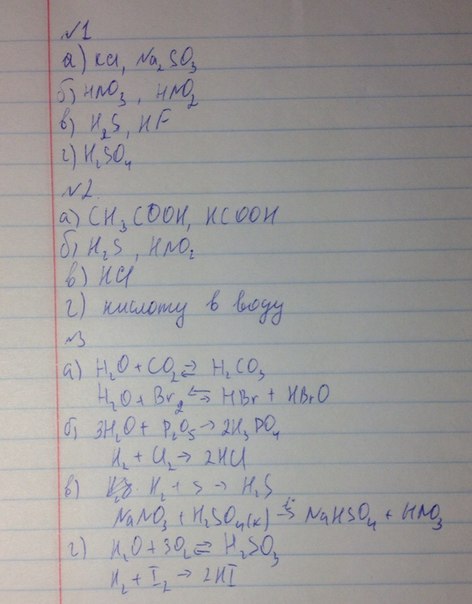 №1
а) KCl, Na2SO3
б) HNO3, HNO2
в) H2S, HF
г) H2SO4
№2.
а) CH3COOH, HCOOH
б) H2S, HNO2
в) HCl
г) кислоту в воду
№3
а) H2O + CO2 ⇄ H2CO3
H2O + Br2 ⇆ HBr + HBrO
б) 3H2O + P2O5 → 2H3PO4
H2 + Cl2 → 2HCl
в) H2 + S → H2S
NaNO3 + H2SO4(к) → NaHSO4 + HNO3
г) H2O + SO2 ⇄ H2SO3
H2 + I2 → 2HI